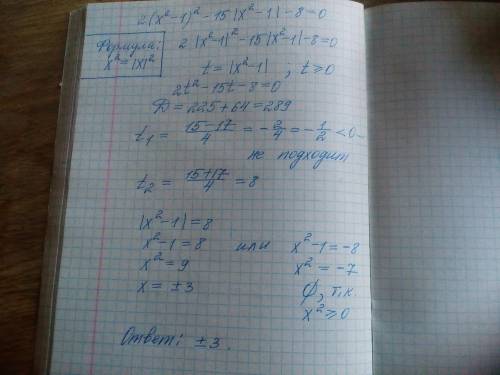 2(x²-1)²-15|x²-1|-8=0
Формула:
x²=|x|²
2|x²-1|²-15|x²-1|-8=0
t=|x²-1| ; t≥0
2t²-15t-8=0
D=225+64=289
t₁ = (15-17)/4 = -2/4 = -1/2 <0 -
не подходит
t₂ = (15+17)/4 = 8
|x²-1|=8
x²-1=8 или x²-1=-8
x²=9 x²=-7
x=±3 ∅, т.к.
x²≥0
Ответ: ±3.